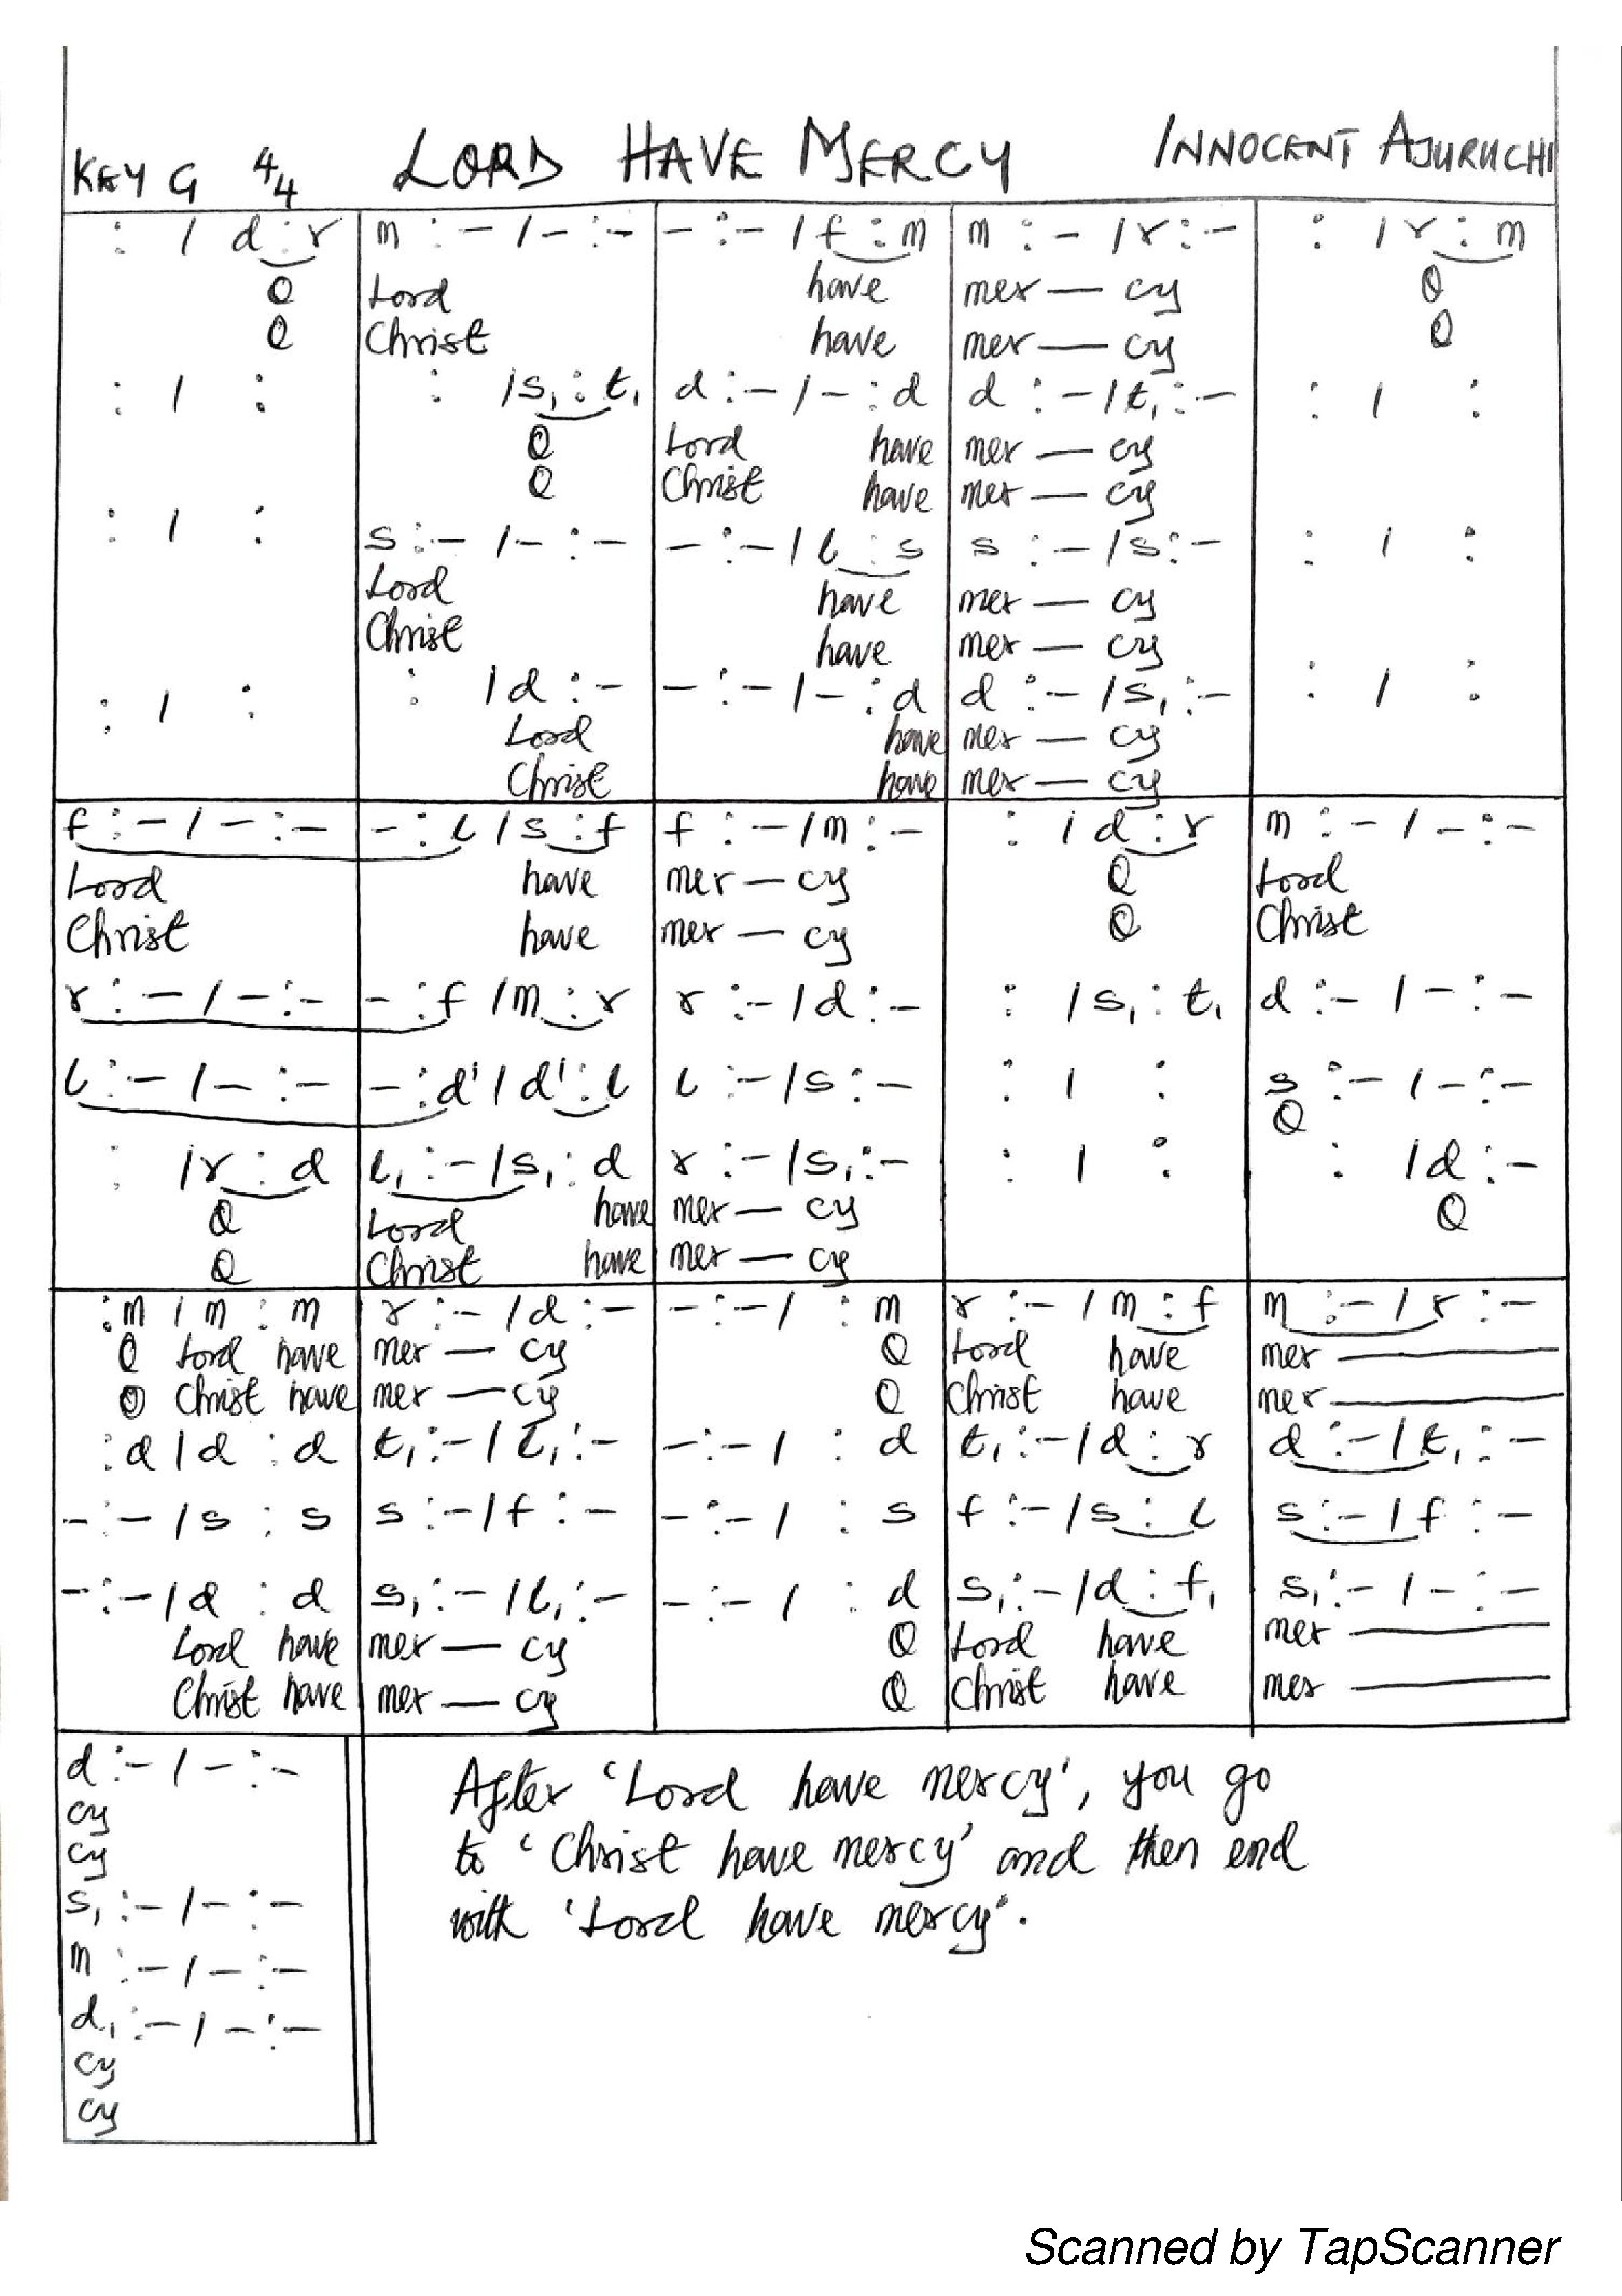 KEY G 4/4 LORD HAVE MERCY INNOCENT AJURUCHI
: / d : r | m : – / – : – | – : – / f : m | m : – / r : – | : / r : m
O Lord have mer — cy O
O Christ have mer — cy O
: / : | : / s₁ : t₁ | d : – / – : d | d : – / t₁ : – | : / :
O Lord have mer — cy
O Christ have mer — cy
: / : | s : – / – : – | – : – / l : s | s : – / s : – | : / :
Lord have mer — cy
Christ have mer — cy
: / : | : / d : – | – : – / – : d | d : – / s₁ : – | : / :
Lord have mer — cy
Christ have mer — cy
f : – / – : – | – : l / s : f | f : – / m : – | : / d : r | m : – / – : –
Lord have mer — cy O Lord
Christ have mer — cy O Christ
r : – / – : – | – : f / m : r | r : – / d : – | : / s₁ : t₁ | d : – / – : –
l : – / – : – | – : d' / d' : l | l : – / s : – | : / : | s : – / – : –
O
: / r : d | l₁ : – / s₁ : d | r : – / s₁ : – | : / : | : / d : –
O Lord have mer — cy O
O Christ have mer — cy
: m / m : m | r : – / d : – | – : – / : m | r : – / m : f | m : – / r : –
O Lord have mer — cy O Lord have mer ———
O Christ have mer — cy O Christ have mer ———
: d / d : d | t₁ : – / l₁ : – | – : – / : d | t₁ : – / d : r | d : – / t₁ : –
– : – / s : s | s : – / f : – | – : – / : s | f : – / s : l | s : – / f : –
– : – / d : d | s₁ : – / l₁ : – | – : – / : d | s₁ : – / d : f₁ | s₁ : – / – : –
Lord have mer — cy O Lord have mer ———
Christ have mer — cy O Christ have mer ———
d : – / – : –
cy
cy
s₁ : – / – : –
m : – / – : –
d₁ : – / – : –
cy
cy
After 'Lord have mercy', you go
to 'Christ have mercy' and then end
with 'Lord have mercy'.
Scanned by TapScanner